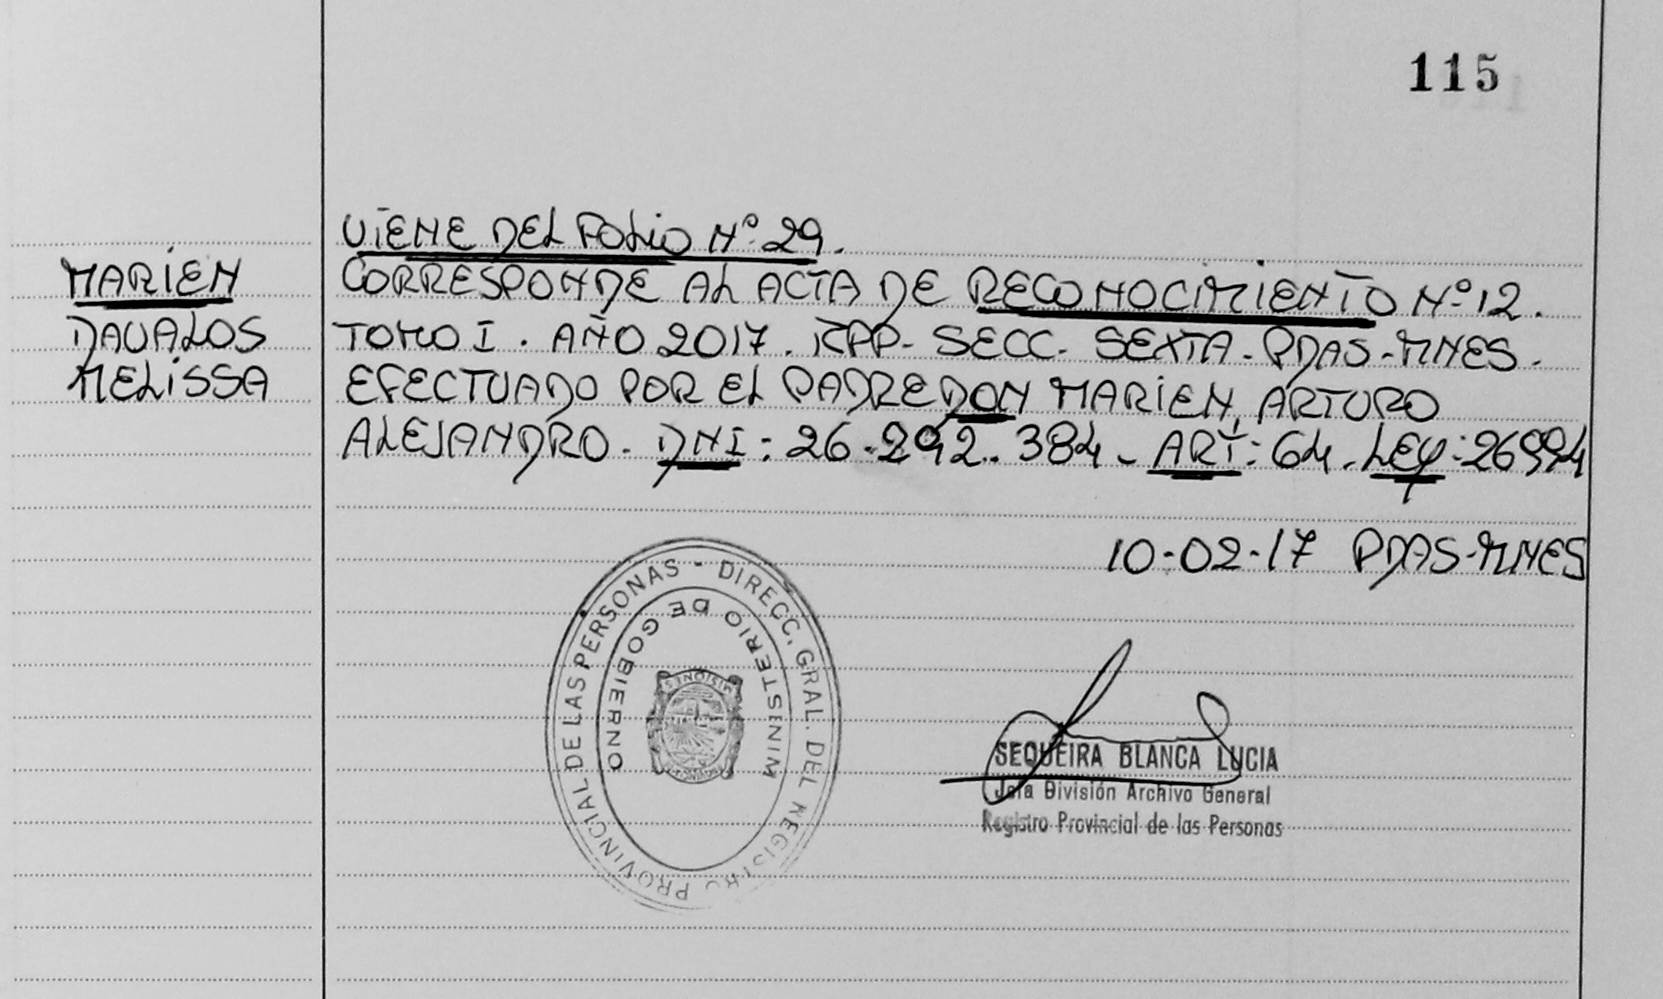 115
VIENE DEL FOLIO Nº 29.
MARIEN
DAVALOS
MELISSA
CORRESPONDE AL ACTA DE RECONOCIMIENTO Nº 12.
TOMO I. AÑO 2017. RPP- SECC- SEXTA- PDAS-MNES.
EFECTUADO POR EL PADRE DON MARIEN, ARTURO
ALEJANDRO- DNI: 26.292.384- ART: 64- LEY: 26994
10-02-17 PDAS-MNES
DIRECC. GRAL. DEL REGISTRO PROVINCIAL DE LAS PERSONAS -
MINISTERIO DE GOBIERNO
MISIONES
SEQUEIRA BLANCA LUCIA
Jefa División Archivo General
Registro Provincial de las Personas